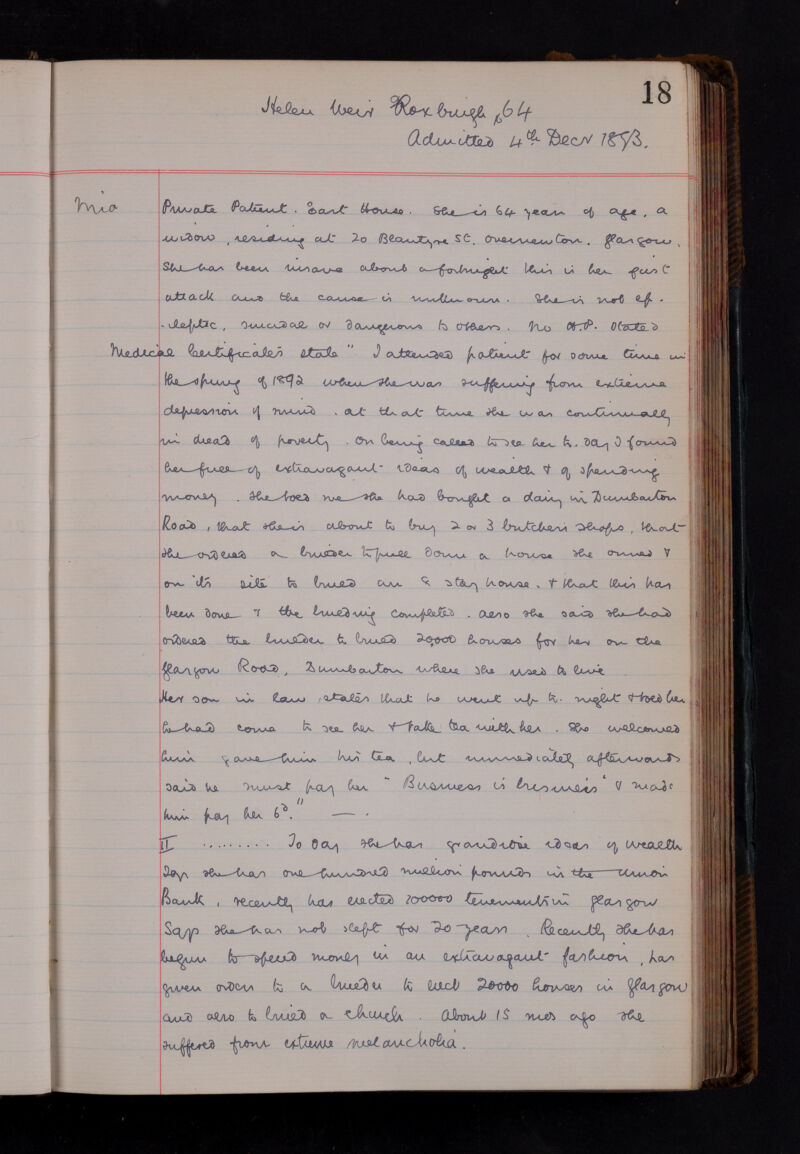 18
Helen Weir Roxburgh, 64
Admitted 4th Decr 1893.
Mia
Private Patient. East House. She is 64 years of age, a
widow, residing at 20 Blantyre St. Overnewton. Glasgow.
She has been insane about a fortnight this is her first
attack and the cause is unknown. She is not ep-
-ileptic, suicidal or dangerous to others. No H.P. Stated
Medical Certificates state "I attended patient for some time in
the spring of 1892 when she was suffering from extreme
depression of mind. at that time she was continually
in dread of poverty. On being called to see her to. day I found
her full of extravagant ideas of wealth & of spending
money. She told me she had bought a dairy in Dumbarton
Road, that she is about to buy 2 or 3 butchers shops, that
she ordered a builder to pull down a house she owned &
on its site to build an 8 story house. & that this has
been done & the building completed. also she said she had
ordered the builder to build 20,000 houses for her on the
Glasgow Road, Dumbarton where she used to live
Her son in law states that he went up to. night & told her
he had come to see her & take tea with her. She welcomed
him gave him his tea, but immediately afterwards
said he must pay her "Business is business" & made
him pay her 6d." — .
II ......... To day she has grandiose ideas of wealth
Says she has one hundred million pounds in the Union
Bank, recently has erected 200000 tenements in Glasgow
Says she has not slept for 20 years. Recently she has
begun to spend money in an extravagant fashion, has
given orders to a builder to erect 20000 houses in Glasgow
and also to build a church. About 15 mos ago she
suffered from extreme melancholia.